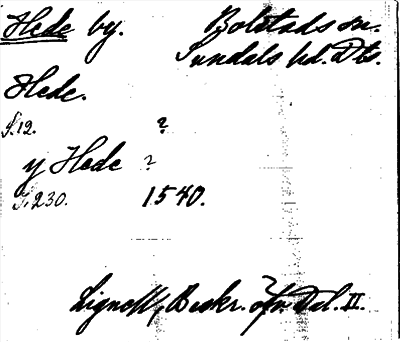 Hede by. Bolstads sn.
Sundals hd. Dls.
Hede.
S. 12. ?
y Hede ?
S. 230. 1540.
Lignell, Beskr. öfv. Dal. II.